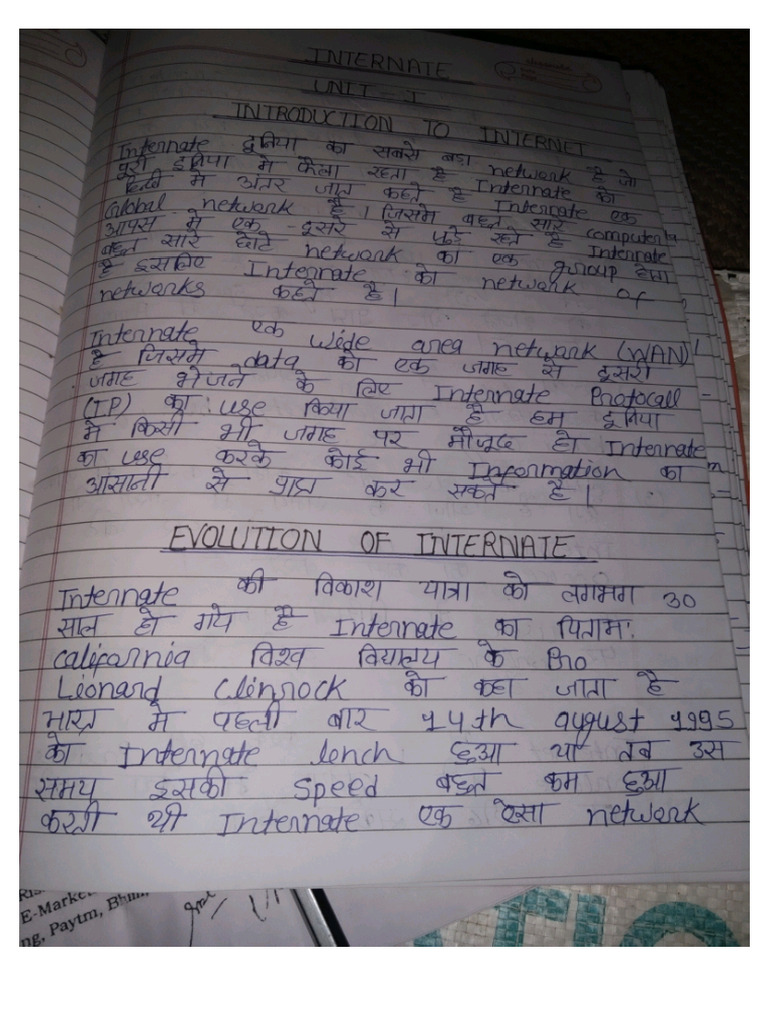 INTERNATE
UNIT - I
INTRODUCTION TO INTERNET
Internate दुनिया का सबसे बडा network है जो
पुरी दुनिया मे फैला रहता है Internate को
हिन्दी मे अंतर जाल कहते है Internate एक
Global network है। जिसमे बहुत सारे computers
आपस मे एक दूसरे से जुडे रहते है Internate
बहुत सारे छोटे network का एक group होता
है इसलिए Internate को network of
networks कहते है।
Internate एक wide area network (WAN)
है जिसमे data को एक जगह से दूसरी
जगह भेजने के लिए Internate Protocall
(IP) का use किया जाता है हम दुनिया
मे किसी भी जगह पर मौजूद हो Internate
का use करके कोई भी Information को
आसानी से प्राप्त कर सकते है।
EVOLUTION OF INTERNATE
Internate की विकाश यात्रा को लगभग 30
साल हो गये है Internate का पिताम:
califarnia विश्व विद्यालय के Pro
Lionard Clinrock को कहा जाता है
भारत मे पहली बार 14th august 1995
को Internate lench हुआ था तब उस
समय इसकी speed बहुत कम हुआ
करती थी Internate एक ऐसा network
E-Marke
ng, Paytm, Bhim,